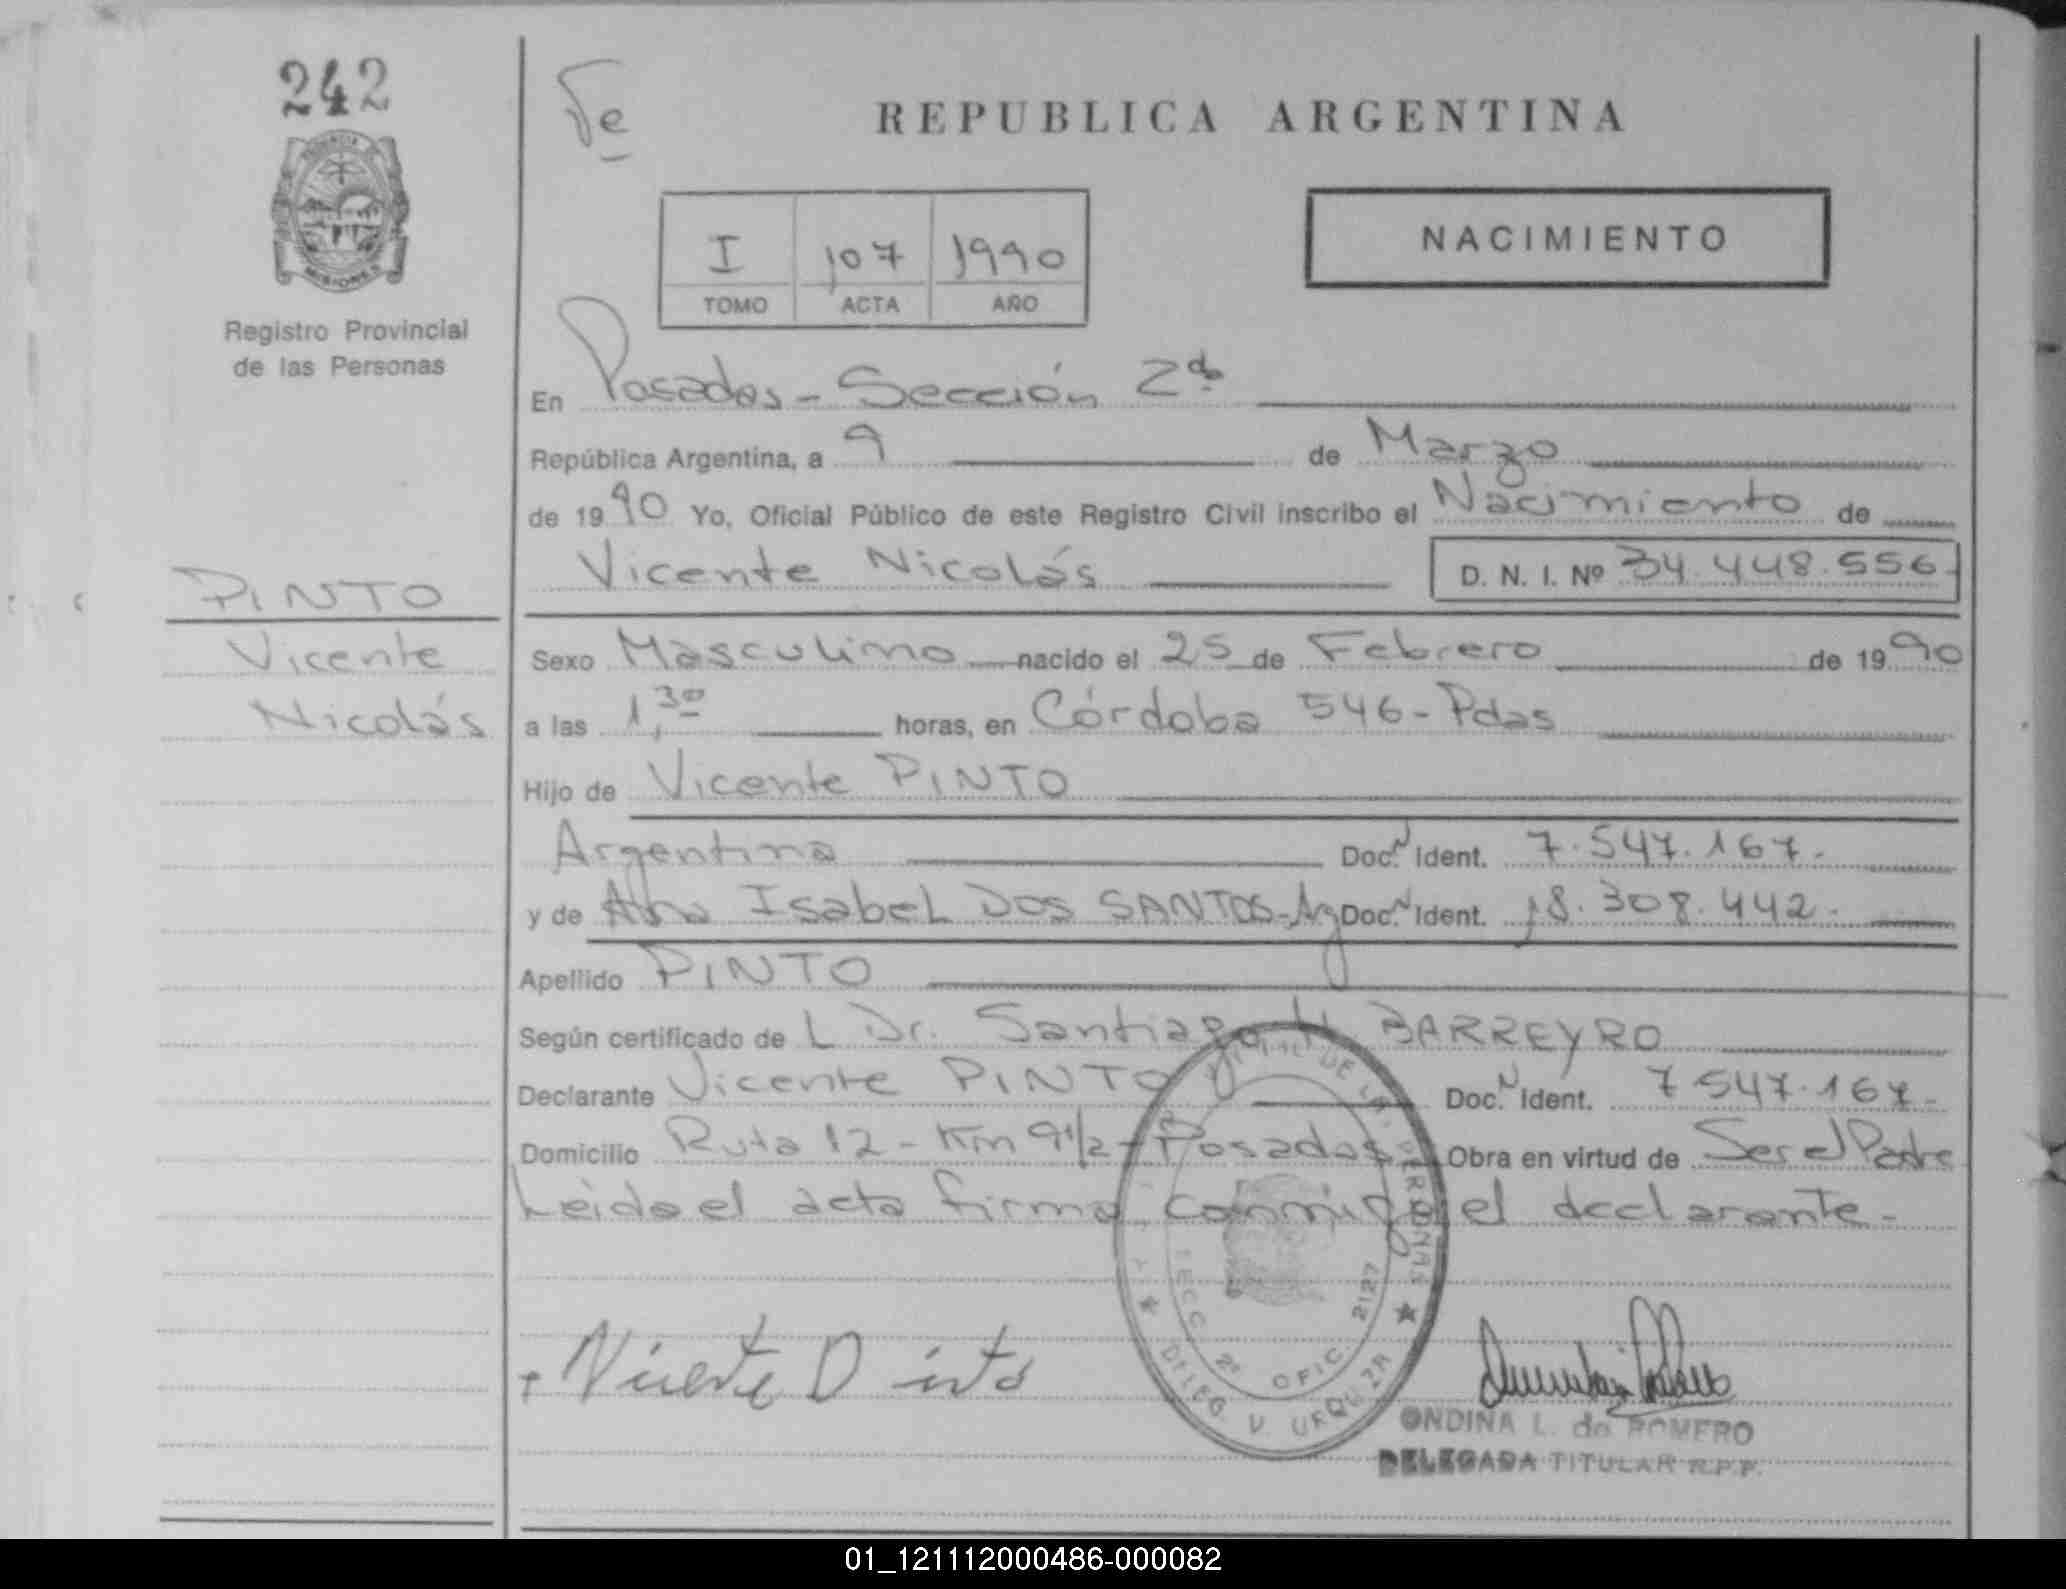 242
REPUBLICA ARGENTINA
I 107 1990
TOMO ACTA AÑO
NACIMIENTO
MISIONES
Registro Provincial
de las Personas
En Posadas - Sección 2da
República Argentina, a 9 de Marzo
de 1990 Yo, Oficial Público de este Registro Civil inscribo el Nacimiento de
Vicente Nicolás D. N. I. Nº 34.448.556-
PINTO
Vicente
Nicolás
Sexo Masculino nacido el 25 de Febrero de 1990
a las 1,30 horas, en Córdoba 546 - Pdas
Hijo de Vicente PINTO
Argentina Doc. N Ident. 7.547.167.-
y de Ana Isabel DOS SANTOS - Arg Doc. N Ident. 18.308.442.-
Apellido PINTO
Según certificado de L Dr. Santiago H BARREYRO
Declarante Vicente PINTO Doc. N Ident. 7 547.167.-
Domicilio Ruta 12 - Km 9 1/2 - Posadas Obra en virtud de Ser el Padre
Leida el acta firma conmigo el declarante -
SECC. 2ª OFIC. 2127
DELEG. V. URQUIZA
Vicente Pinto
ONDINA L. de ROMERO
DELEGADA TITULAR R.P.P.
01_121112000486-000082